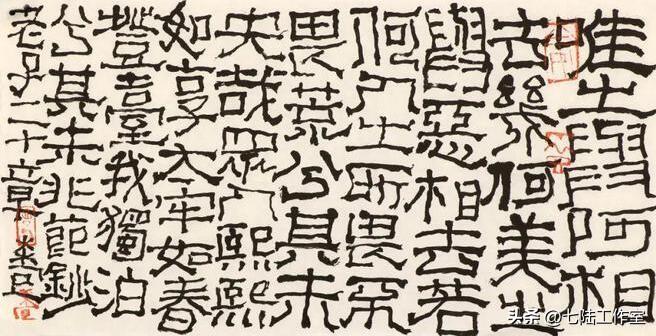 唯之與阿相
去幾何美之
與惡相去若
何人之所畏不
畏荒兮其未
央哉眾人熙熙
如享大牢如春
登臺我獨泊
兮其未兆節鈔
老子二十章
头条 @七陆工作室